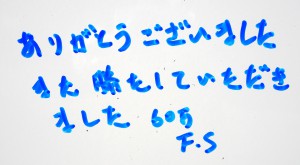 ありがとうございました
また勝たしていただき
ました 60万
F.S